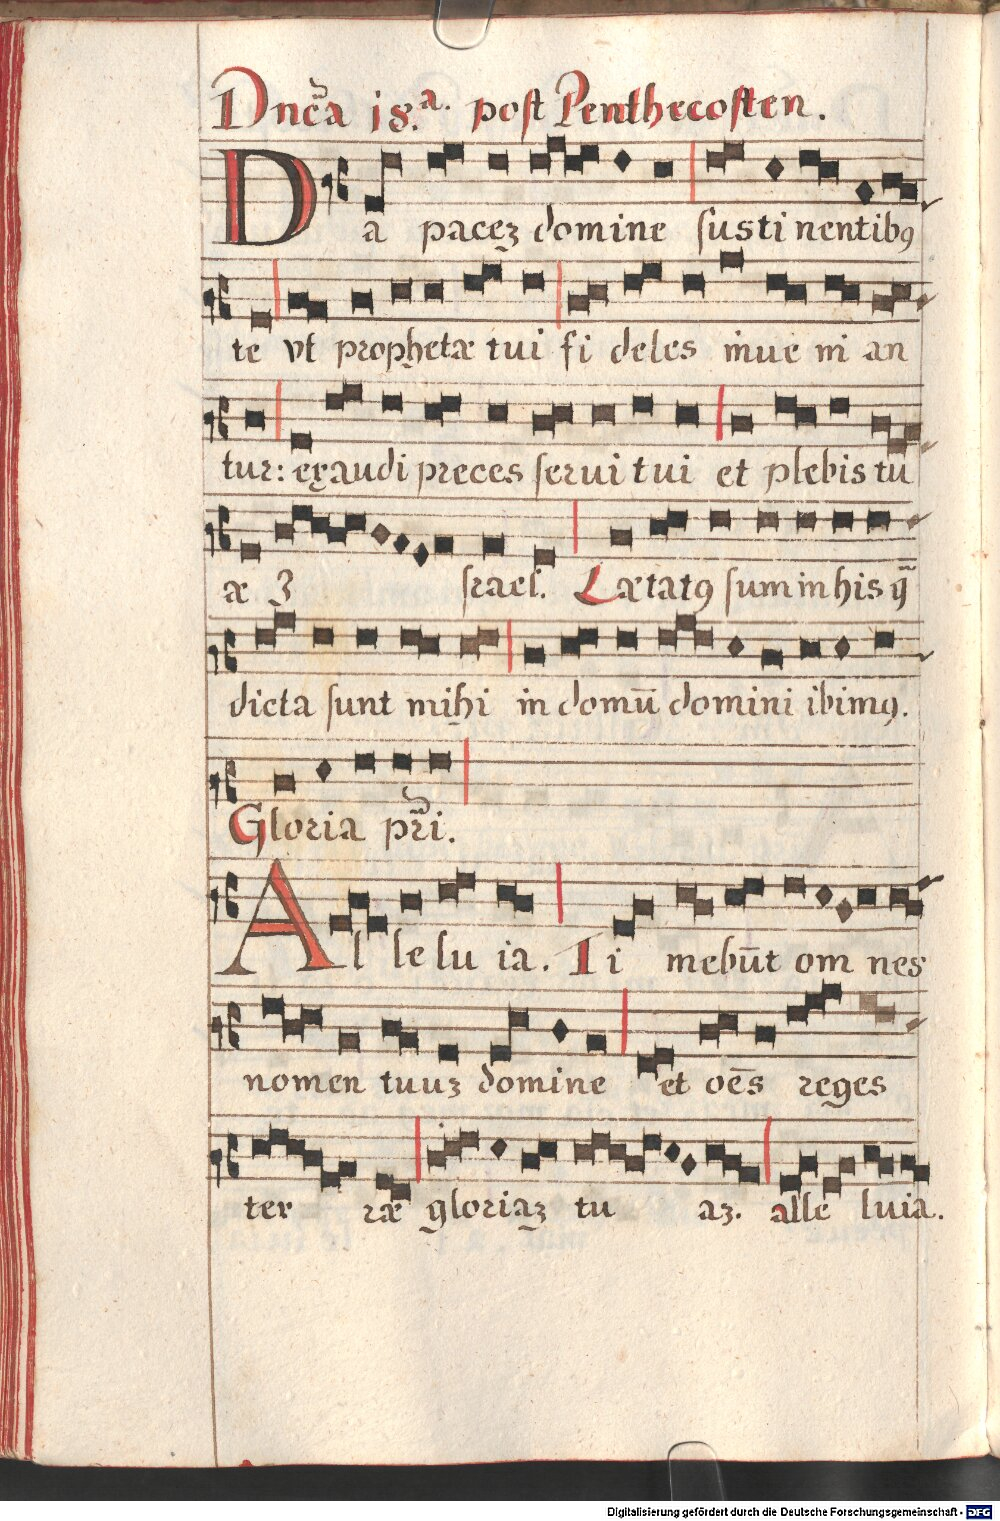 Dnc̃a 18.ª post Penthecosten.
Da pacez domine sustinentibꝯ
te vt prophetæ tui fi deles inue ni an
tur: exaudi preces serui tui et plebis tu
æ I srael. Lætatꝯ sum in his q̃
dicta sunt mihi in domū domini ibimꝯ.
Gloria pr̃i.
Al le lu ia. Ti mebūt om nes
nomen tuuz domine et oēs reges
ter ræ gloriaz tu az. alle luia.
Digitalisierung gefördert durch die Deutsche Forschungsgemeinschaft - DFG